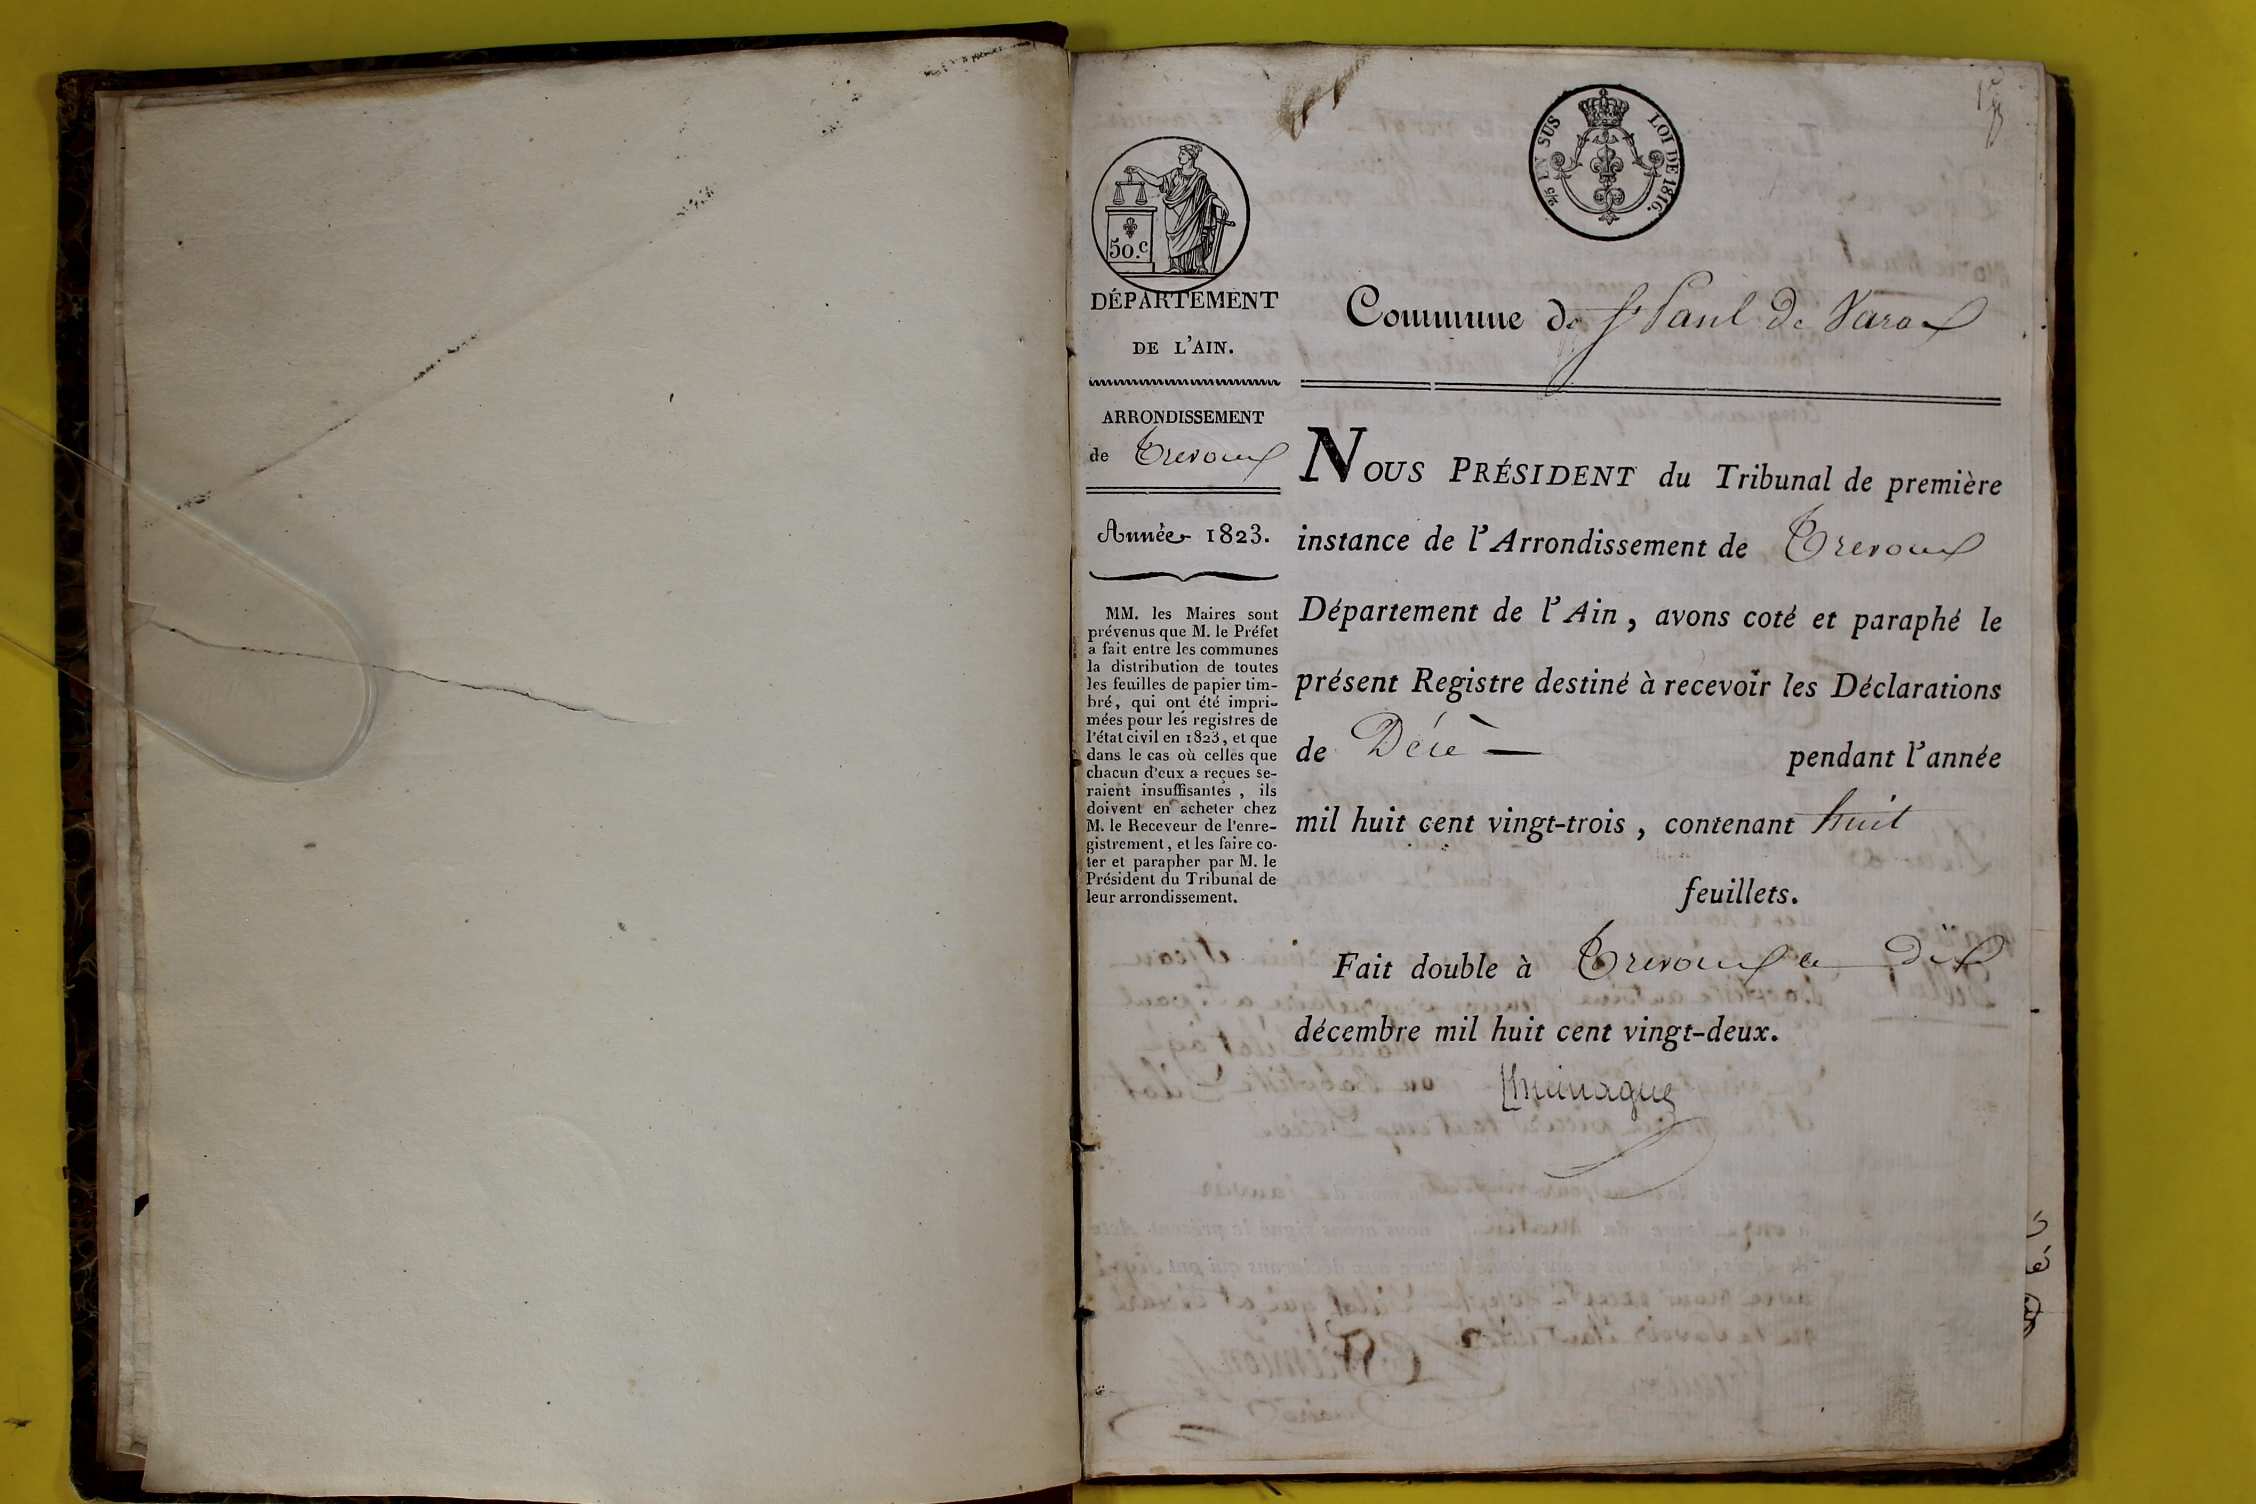 1er
2/5 EN SUS LOI DE 1816.
50.c
DÉPARTEMENT
DE L'AIN.
ARRONDISSEMENT
de Trevoux
Année 1823.
MM. les Maires sont
prévenus que M. le Préfet
a fait entre les communes
la distribution de toutes
les feuilles de papier tim-
bré, qui ont été impri-
mées pour les registres de
l'état civil en 1823, et que
dans le cas où celles que
chacun d'eux a reçues se-
raient insuffisantes , ils
doivent en acheter chez
M. le Receveur de l'enre-
gistrement, et les faire co-
ter et parapher par M. le
Président du Tribunal de
leur arrondissement.
Commune de St Paul de Varax
NOUS PRÉSIDENT du Tribunal de première
instance de l'Arrondissement de Trevoux
Département de l'Ain , avons coté et paraphé le
présent Registre destiné à recevoir les Déclarations
de Décè pendant l'année
mil huit cent vingt-trois , contenant huit
feuillets.
Fait double à Trevoux ce dix
décembre mil huit cent vingt-deux.